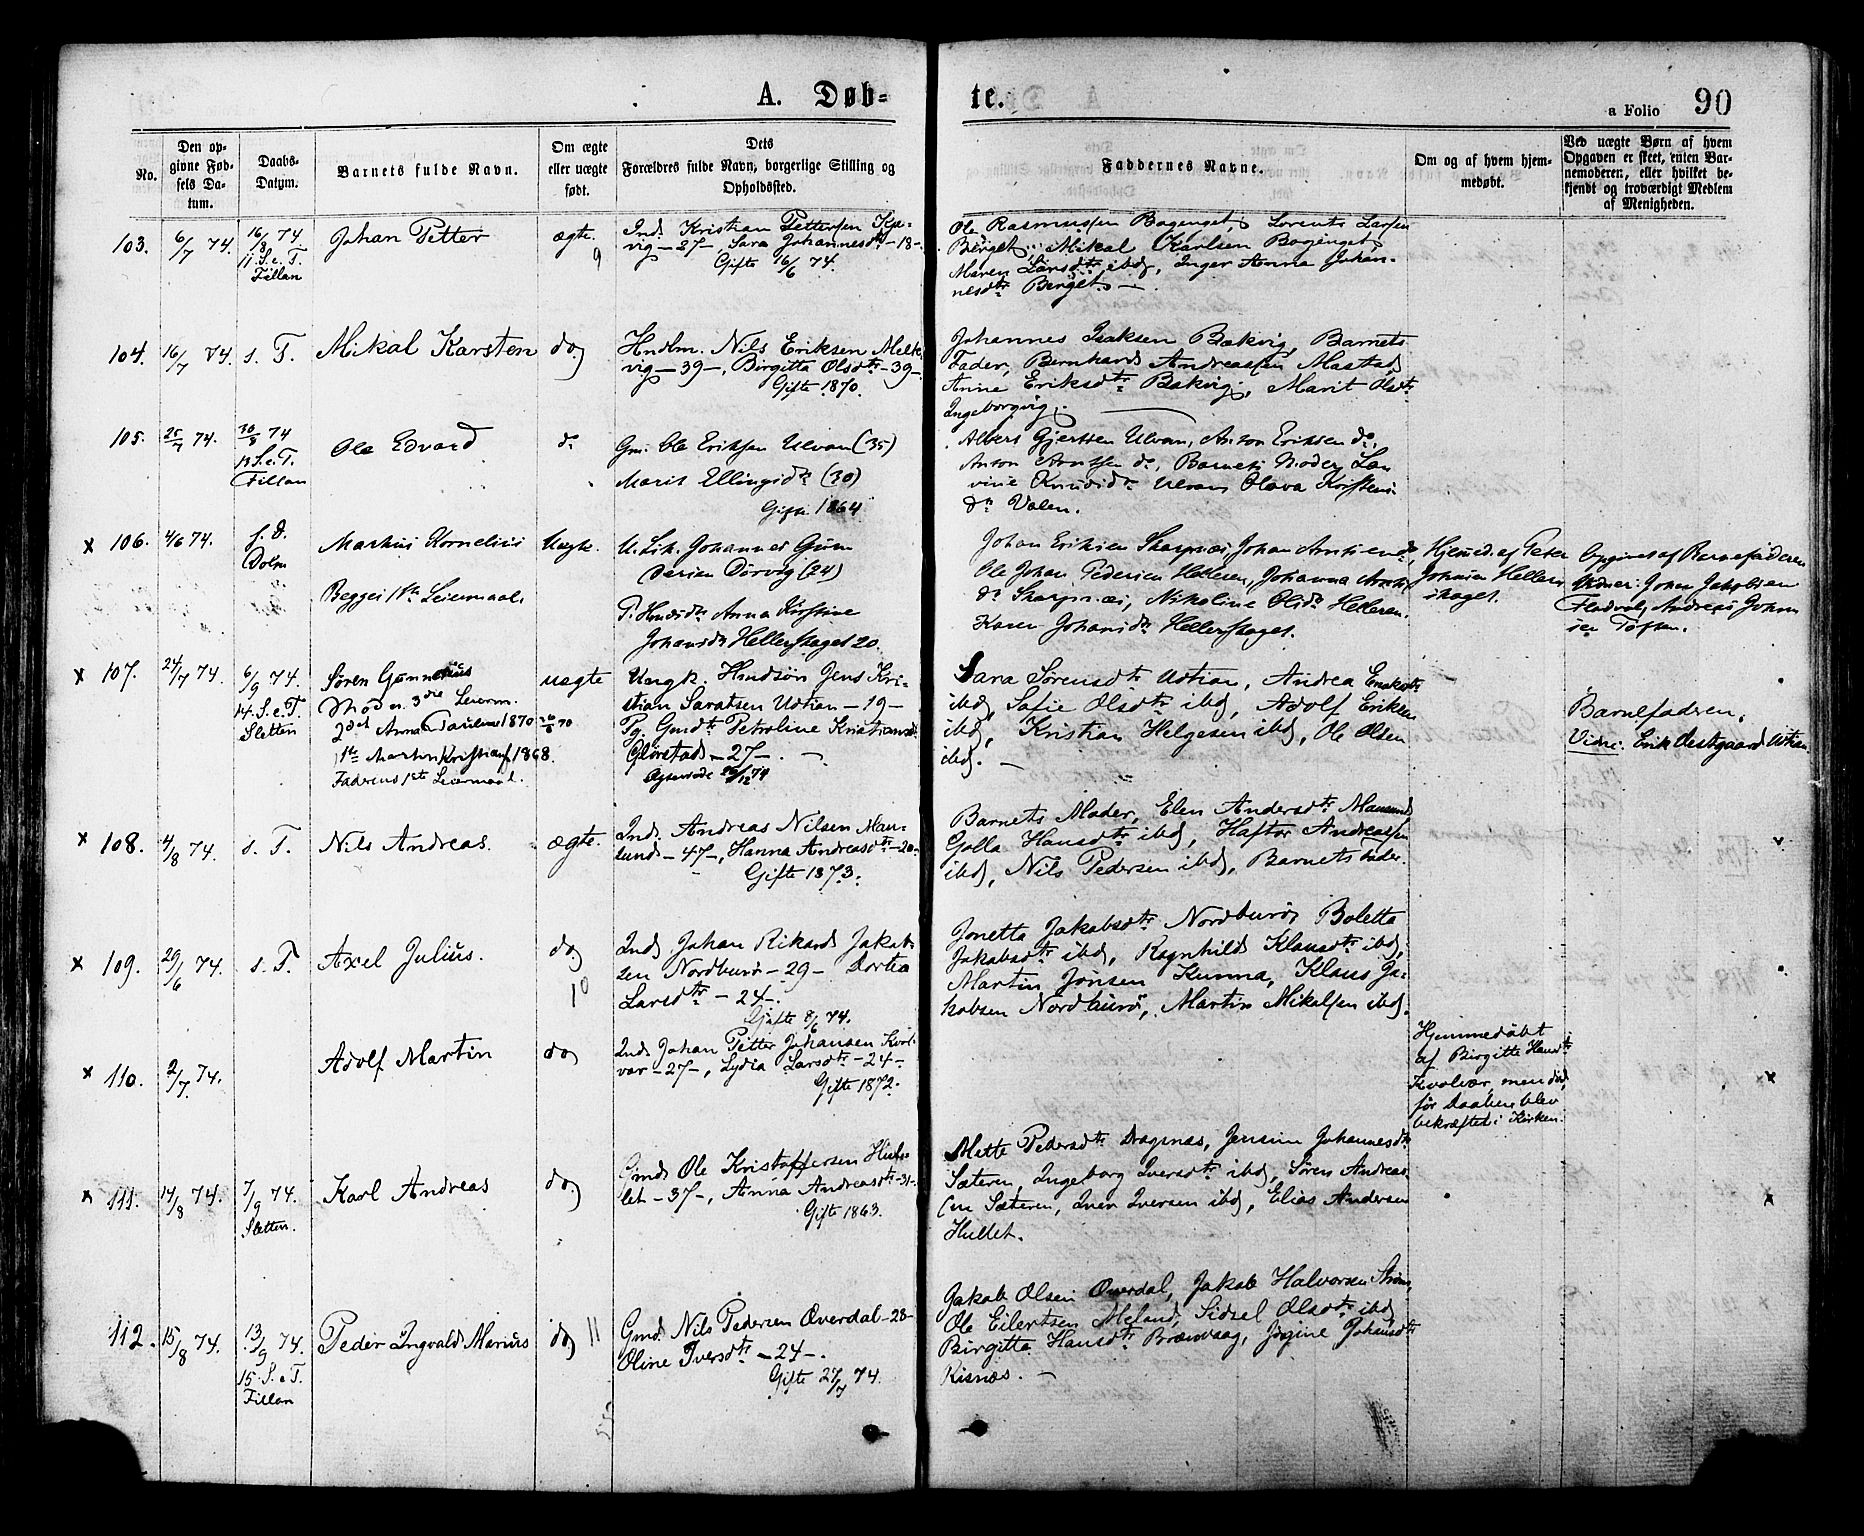 A. Døb=
te.
a Folio 90
No.
Den op-
givne Fød-
sels Da-
tum.
Daabs-
Datum.
Barnets fulde Navn.
Om ægte
eller uægte
født.
Dets
Forældres fulde Navn, borgerlige Stilling og
Opholdssted.
Faddernes Navne.
Om og af hvem hjem-
medøbt.
Ved uægte Børn af hvem
Opgaven er skeet, enten Bar-
nemoderen, eller hvilket be-
kjendt og troværdigt Medlem
af Menigheden.
103.
6/7 74.
16/8 74
11 S.e.T.
Fillan
Johan Petter
ægte.
9
Ind. Kristian Pettersen
vig -27-, Sara Johannesdtr -18-.
Gifte 16/6 74.
Ole Rasmussen Bogenget, Lorents Larsen
Berget, Mikal Karlsen Bogenget,
Maren Larsdtr ibd, Inger Anna Johan-
nesdtr Berget. -
104.
16/7 74.
s. T.
Mikal Karsten
do
Hndlm. Nils Eriksen Melk-
vig -39-, Birgitta Olsdtr -39-
Gifte 1870.
Johannes Isaksen Bækvig, Barnets
Fader, Bernhard Andreassen Mastad,
Anne Eriksdtr Bækvig, Marit Olsdtr
Ingeborgvig.
105.
25/7 74.
30/8 74
13 S.e.T.
Fillan
Ole Edvard
do
Gm. Ole Eriksen Ulvan (35)
Marit Ellingsdtr (30)
Gifte 1864
Albert Gjertsen Ulvan, Anton Eriksen do,
Anton Arntsen do, Barnets Moder, La-
vine Knudsdtr Ulvan, Olava Kristens-
dtr Valen.
x 106.
4/6 74.
s. D.
Dolm
Markus Kornelius
Begges 1ste Leiermaal.
Uægte.
U. Johannes
Dørvig (24)
P. Hmdsdtr Anna Kirstine
Johansdtr Hellerskaget 20.
Johan Eriksen Skarpnæs, Johan Arntsen do,
Ole Johan Pedersen Helleren, Johanna Arnts-
dtr Skarpnæs, Nikoline Olsdtr Helleren,
Karen Johansdtr Hellerskaget.
Hjemmed. af Peter
Johnsen Heller-
skaget.
Opgivet af Barnefaderen
Vidner: Johan Jakobsen
Fladval, Andreas Johan-
sen Toften.
x 107.
24/7 74.
6/9 74.
14. S.e.T.
Sletten
Søren Gunnerius
Moder. 3die Leierm.
2det Anna Pauline 1870
1ste Martin Kristian 1868.
Faderens 1ste Leiermaal.
uægte
Ungk. Hmdsøn Jens Kri-
stian Saratsen Udtian -19-
Pg. Gmdtr Petroline Kristiansdtr
Glørstad -27-. -
Sara Sørensdtr Udtian, Andrea
ibd, Sofie Olsdtr ibd, Adolf Eriksen
ibd, Kristian Helgesen ibd, Ole Olsen
ibd. -
Barnefaderen.
Vidne: Erik Vestgaard Udtian.
x 108.
4/8 74.
s. T.
Nils Andreas.
ægte.
Ind. Andreas Nilsen Mau-
sund -47-, Hanna Andreasdtr -20-
Gifte 1873.
Barnets Moder, Elen Andersdtr Mausund,
Golla Hansdtr ibd, Haftor Andreassen
ibd, Nils Pedersen ibd, Barnets Fader.
x 109.
29/6 74.
s. T.
Axel Julius.
do
10
Ind. Johan Rikard Jakob-
sen Nordburø -29- Dortea
Larsdtr -24-.
Gifte 8/6 74.
Jonetta Jakobsdtr Nordburø, Boletta
Jakobsdtr ibd, Ragnhild Klausdtr ibd,
Martin Jønsen Kunna, Klaus Ja-
kobsen Nordburø, Martin Mikalsen ibd.
x 110.
2/7 74.
Adolf Martin
do
Ind. Johan Petter Johansen Kvol-
vær -27-, Lydia Larsdtr -24-
Gifte 1872.
Hjemmedøbt
af Birgitte Hansdtr
Kvolvær, men død
før Daaben blev
bekræftet i Kirken.
x
x 111.
14/8 74.
7/9 74.
Sletten.
Karl Andreas
do
Gmd. Ole Kristoffersen Hul-
let -37-, Anna Andreasdtr -31-
Gifte 1863.
Mette Pedersdtr Dragsnæs, Jensine Johannesdtr
Sæteren, Ingeborg Iversdtr ibd, Søren Andreas-
sen Sæteren, Iver Iversen ibd, Elias Andersen
Hullet.
x
112.
15/8 74.
13/9 74.
15. S.e.T.
Fillan
Peder Ingvald Marius
do 11
Gmd. Nils Pedersen Overdal -28-
Oline Iversdtr -24-.
Gifte 27/7 74.
Jakob Olsen Overdal, Jakob Halvorsen Strøm,
Ole Eilertsen Meland, Sidsel Olsdtr ibd
Birgitta Hansdtr Brænvaag, Jørgine Johansdtr
Risnæs. -